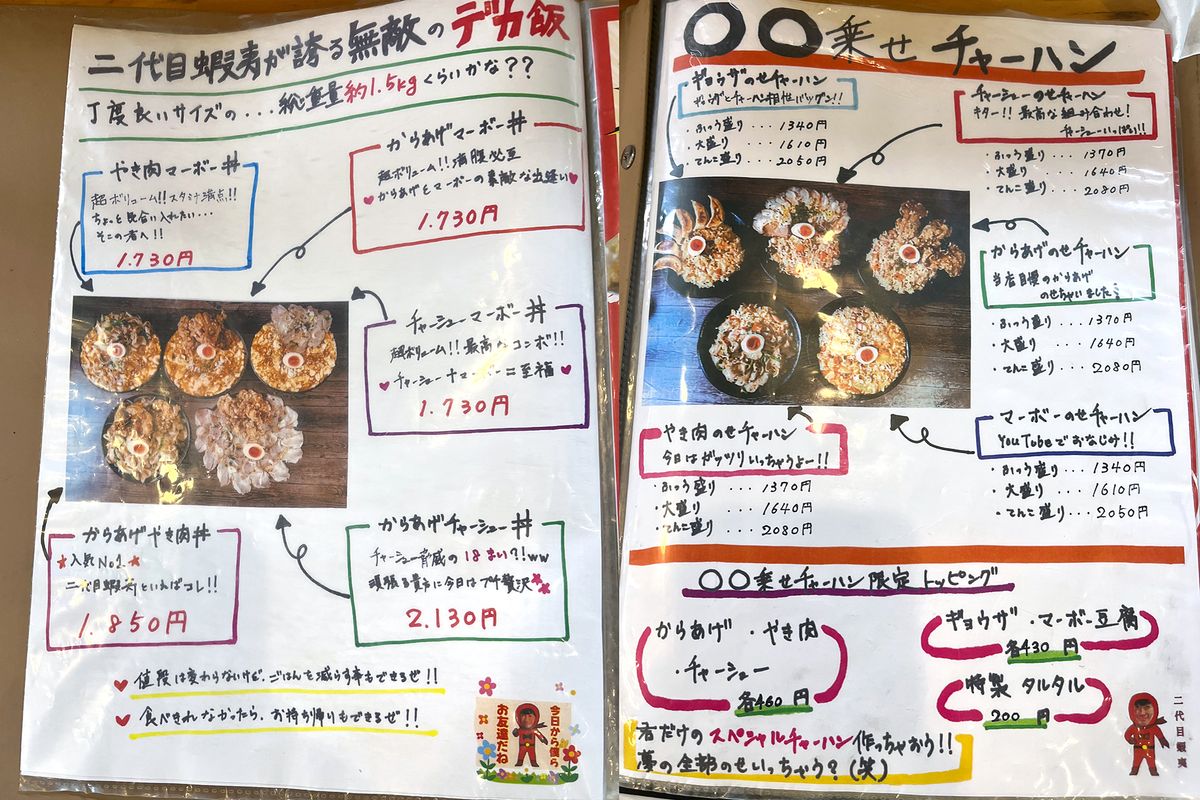 二代目蝦夷が誇る無敵のデカ飯
丁度良いサイズの...総重量約1.5kgくらいかな??
やき肉マーボー丼
超ボリューム!!スタミナ満点!!
ちょっと気合い入れたい...
そこの者へ!!
1.730円
からあげマーボー丼
超ボリューム!!満腹必至
からあげとマーボーの素敵な出逢い
1.730円
チャーシューマーボー丼
超ボリューム!!最高のコンボ!!
チャーシュー+マーボー=至福
1.730円
からあげやき肉丼
人気No1.
二代目蝦夷といればコレ!!
1.850円
からあげチャーシュー丼
チャーシュー脅威の18まい?!ww
頑張る貴方に今日はプチ贅沢
2.130円
値段は変わらないけど、ごはんを減らす事もできるぜ!!
食べきれなかったら、お持ち帰りもできるぜ!!
今日から僕ら
お友達だね
〇〇乗せチャーハン
ギョウザのせチャーハン
ギョウザとチャーハン相性バツグン!!
・ふつう盛り...1340円
・大盛り...1610円
・てんこ盛り...2050円
チャーシューのせチャーハン
キター!!最高な組み合わせ!
チャーシューいっぱい!!
・ふつう盛り...1370円
・大盛り...1640円
・てんこ盛り...2080円
からあげのせチャーハン
当店自慢のからあげ
のせちゃいました
・ふつう盛り...1370円
・大盛り...1640円
・てんこ盛り...2080円
やき肉のせチャーハン
今日はガッツリいっちゃうよー!!
・ふつう盛り...1370円
・大盛り...1640円
・てんこ盛り...2080円
マーボーのせチャーハン
YouTubeでおなじみ!!
・ふつう盛り...1340円
・大盛り...1610円
・てんこ盛り...2050円
〇〇乗せチャーハン限定トッピング
からあげ・やき肉
・チャーシュー
各460円
ギョウザ・マーボー豆腐
各430円
特製タルタル
200円
君だけのスペシャルチャーハン作っちゃおう!!
夢の全部のせいっちゃう?(笑)
二代目蝦夷